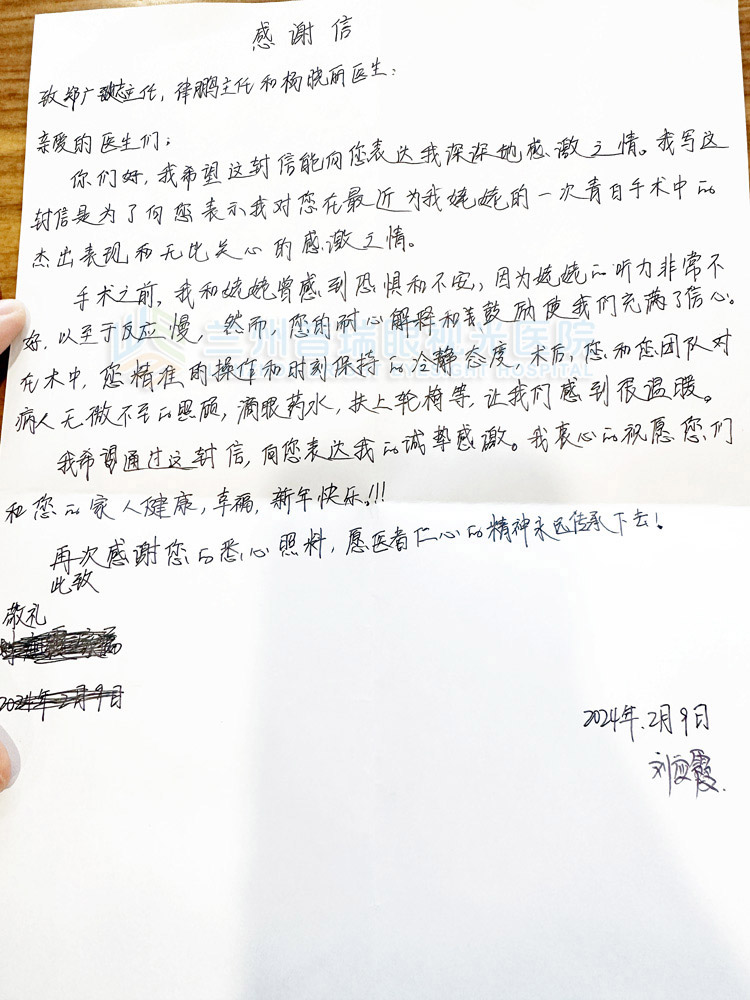 感谢信
致郑广主任，律鹏主任和杨晓丽医生：
亲爱的医生们；
你们好，我希望这封信能向您表达我深深地感激之情。我写这
封信是为了向您表示我对您在最近为我姥姥的一次青白手术中的
杰出表现和无比关心的感激之情。
手术之前，我和姥姥曾感到恐惧和不安，因为姥姥的听力非常不
好，以至于反应慢，然而，您的耐心解释和鼓励使我们充满了信心。
在术中，您精准的操作和时刻保持的冷静态度。术后，您和您团队对
病人无微不至的照顾，滴眼药水，扶上轮椅等，让我们感到很温暖。
我希望通过这封信，向您表达我的诚挚感激。我衷心的祝愿您们
和您的家人健康，幸福，新年快乐！！！
再次感谢您的悉心照料，愿医者仁心的精神永远传承下去！
此致
敬礼
2024年2月9日
2024年.2月9日
刘应霞.
兰州普瑞眼视光医院